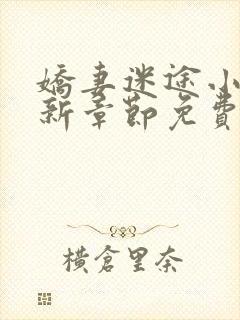 嬌妻迷途小
新章節免費
橫倉里奈